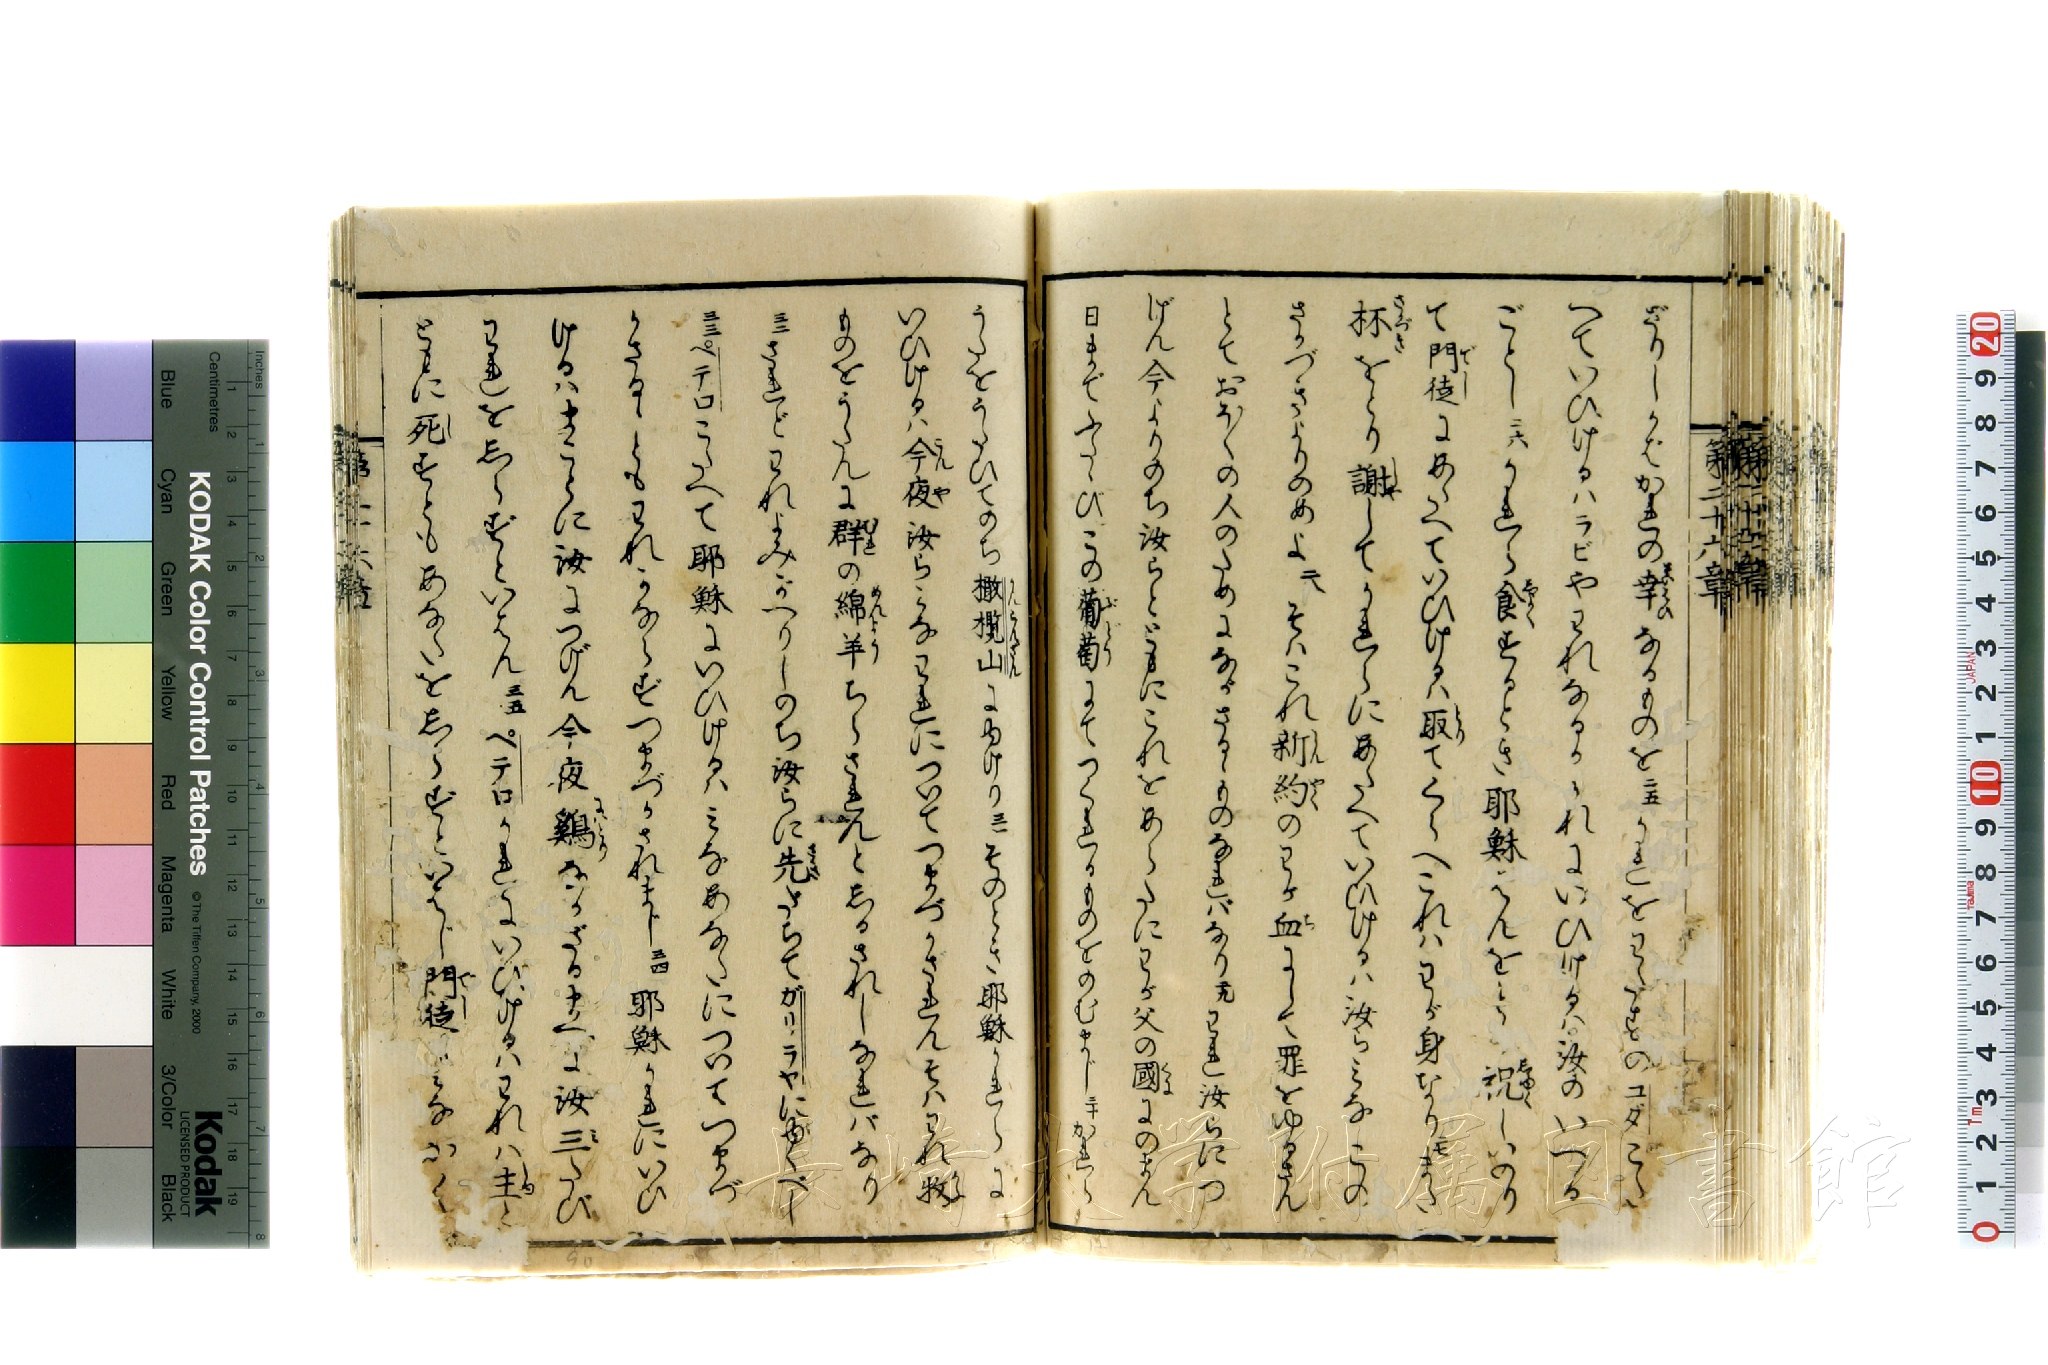 ざりしならバかれの幸なるものを二五かれをわたすものユダこた
へていひけるハラビやわれなるかかれにいひけるハ汝のいへる
ごとし二六かれら食するとき耶穌ぱんをとり祝しいのり
て門徒にあたへていひけるハ取てくらへこれハわが身なり二七また
杯をとり謝してかれらにあたへていひけるハ汝らみなこの
さかづきよりのめよ二八そハこれ新約のわが血にして罪をゆるさん
とておほくの人のためにながさるゝものなれバなり二九われ汝らにつ
げん今よりのち汝らとともにこれをあらたにわが父の國にのまん
日までふたゝびこの葡萄にてつくれるものをのむまじ三十かれら
うたをうたひてのち橄欖山にゆけり三一そのとき耶穌かれらに
いひけるハ今夜汝らみなわれについてつまづかされんそハわれ牧
ものをうたんに群の綿羊ちらされんとしるされしなれバなり
三二されどわれよみがへりしのち汝らに先だちてガリラヤにゆくべし
三三ペテロこたへて耶穌にいひけるハみなあなたについてつまづ
かさるゝともわれかならずつまづかされまじ三四耶穌かれにいひ
けるハまことに汝につげん今夜鷄なかざるまへに汝三たび
われをしらずといはん三五ペテロかれにいひけるハわれハ主と
ともに死すともあなたをしらずといはじ門徒みなかく
第二十六章
KODAK Color Control Patches
© The Tiffen Company, 2000
Kodak
LICENSED PRODUCT
Inches
Centimetres
Blue
Cyan
Green
Yellow
Red
Magenta
White
3/Color
Black
長崎大学附属図書館
JAPAN
Tajima